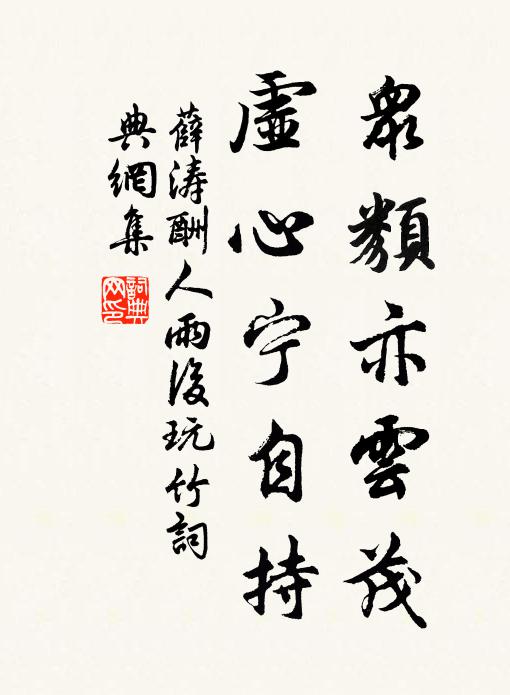 眾類亦雲茂
虛心宁自持
薛濤酬人雨後玩竹詞
典網集
詞典
网印